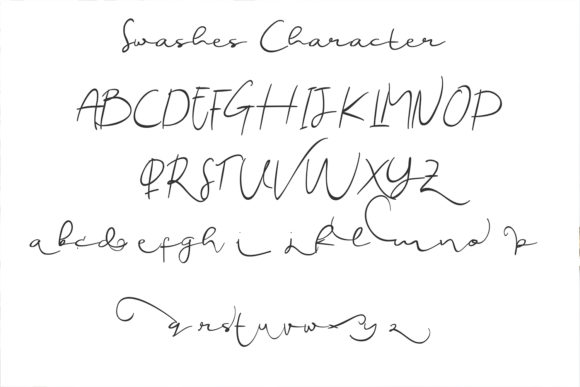 Swashes Character
ABCDEFGHIJKLMNOP
QRSTUVWXYZ
abcdefghijklmnop
qrstuvwxyz